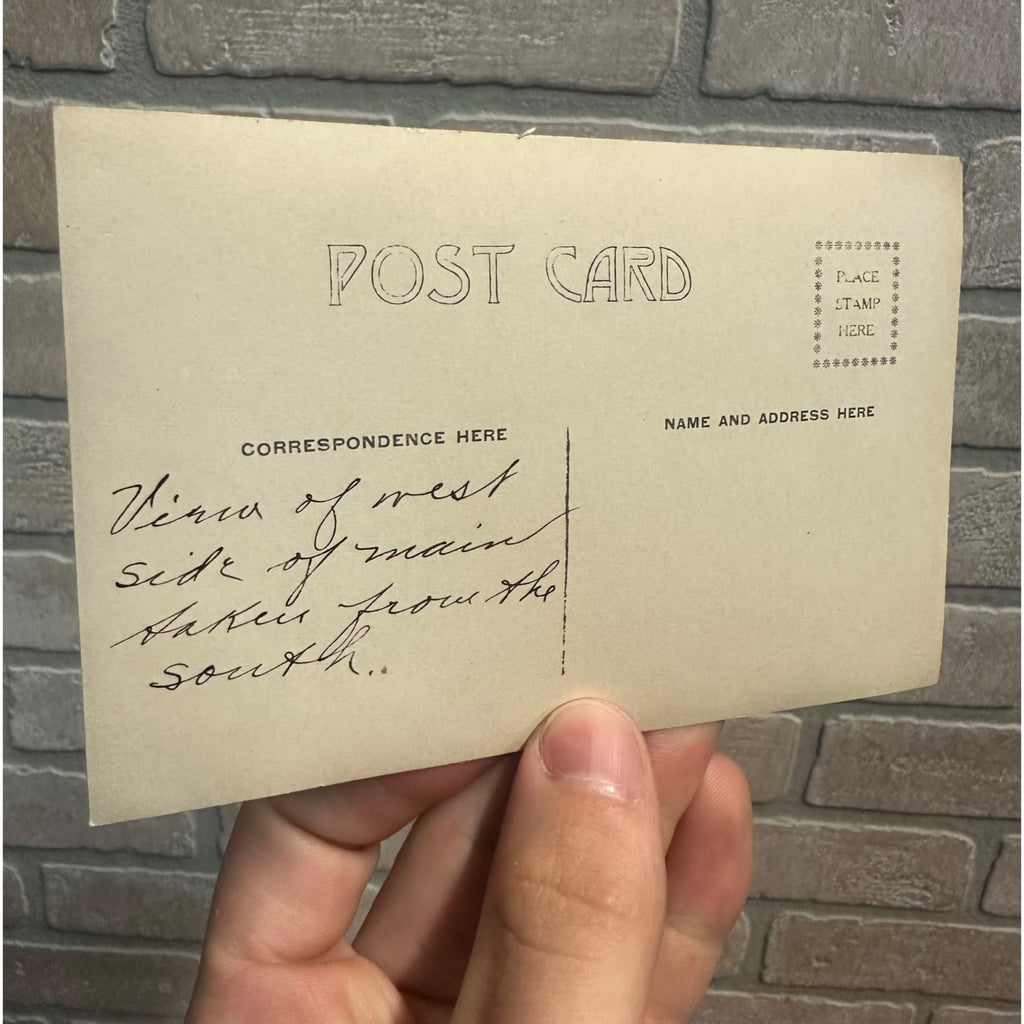 POST CARD
PLACE
STAMP
HERE
CORRESPONDENCE HERE
NAME AND ADDRESS HERE
View of west
side of main
taken from the
south.